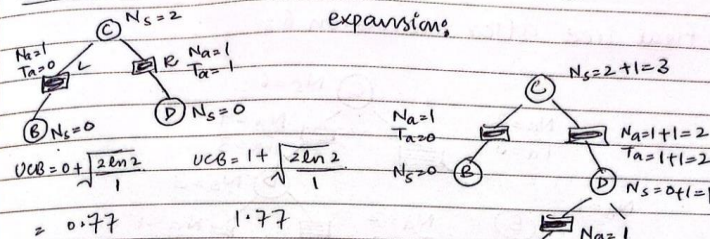 expansion:
C Ns=2
Na=1
Ta=0
L
R
Na=1
Ta=1
B Ns=0
D Ns=0
UCB = 0+√2ln2/1
= 0.77
UCB = 1+√2ln2/1
1.77
C
Ns=2+1=3
Na=1
Ta=0
Na=1+1=2
Ta=1+1=2
Ns=0 B
D
Ns=0+1=1
Na=1